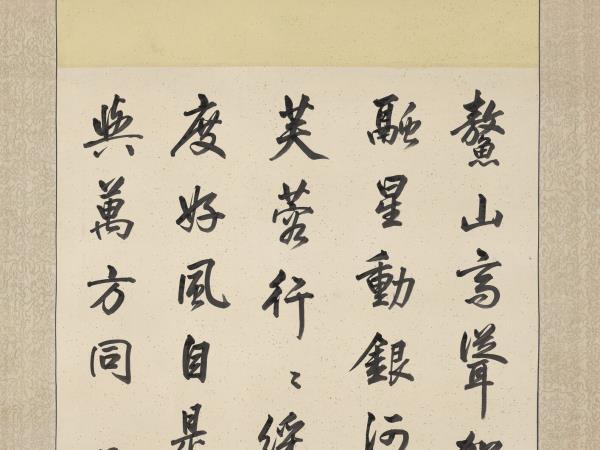 鰲山高聳
融星動銀河
芙蓉行〻
度好風自是
與萬方同